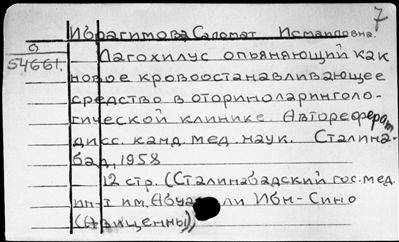 7
Ибрагимова Саломат Исмаиловна.
0
54661.
Лагохилус опьяняющий как
новое кровоостанавливающее
средство в оториноларинголо-
гической клинике. Автореферат
дисс. канд. мед. наук. Сталина-
бад, 1958
12 стр. (Сталинабадский гос. мед.
ин-т им. Абуа ли Ибн-Сино
(Авиценны))